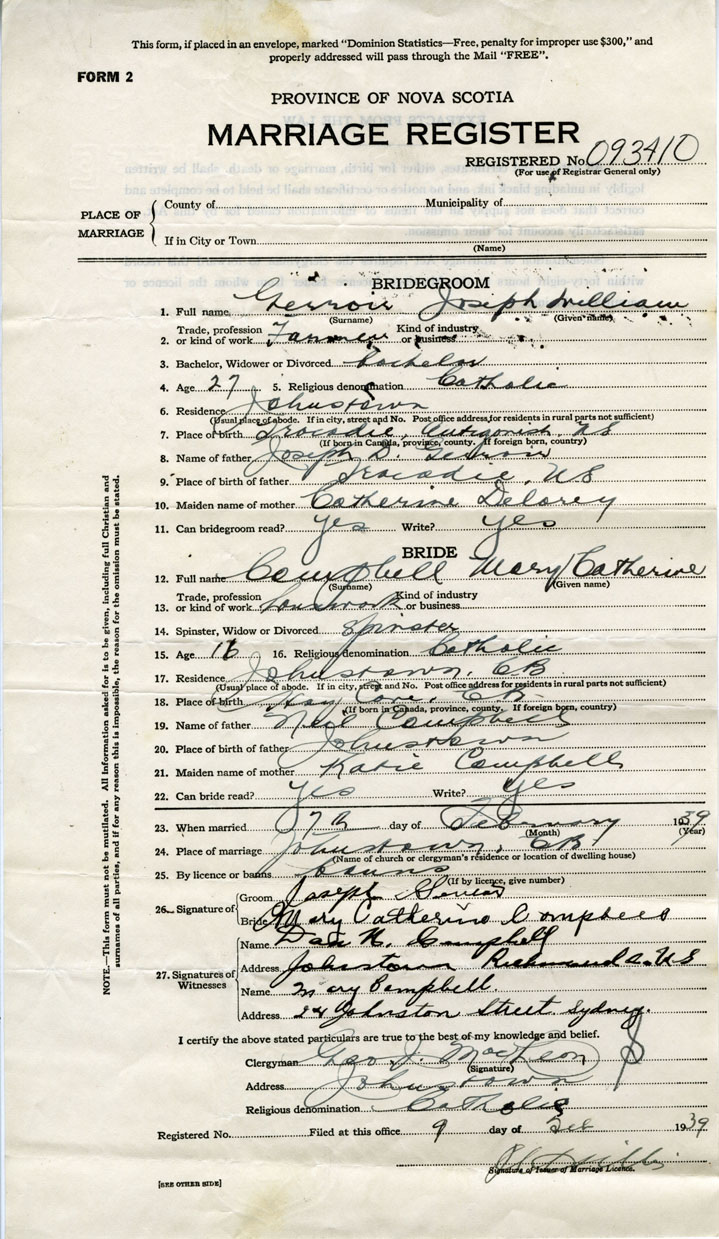 This form, if placed in an envelope, marked "Dominion Statistics—Free, penalty for improper use $300," and
properly addressed will pass through the Mail "FREE".
FORM 2
PROVINCE OF NOVA SCOTIA
MARRIAGE REGISTER
REGISTERED No 093410
(For use of Registrar General only)
PLACE OF MARRIAGE
County of Municipality of
If in City or Town
(Name)
BRIDEGROOM
1. Full name Gerroir Joseph William
(Surname) (Given name)
2. Trade, profession or kind of work Farmer Kind of industry or business
3. Bachelor, Widower or Divorced Bachelor
4. Age 27 5. Religious denomination Catholic
6. Residence Johnstown
(Usual place of abode. If in city, street and No. Post office address for residents in rural parts not sufficient)
7. Place of birth Tracadie, Antigonish, NS
(If born in Canada, province, county. If foreign born, country)
8. Name of father Joseph D. Gerroir
9. Place of birth of father Tracadie, NS
10. Maiden name of mother Catherine Delorey
11. Can bridegroom read? Yes Write? Yes
BRIDE
12. Full name Campbell Mary Catherine
(Surname) (Given name)
13. Trade, profession or kind of work housework Kind of industry or business
14. Spinster, Widow or Divorced Spinster
15. Age 16. Religious denomination Catholic
17. Residence Johnstown, CB
(Usual place of abode. If in city, street and No. Post office address for residents in rural parts not sufficient)
18. Place of birth Hay Cove, C.B.
(If born in Canada, province, county. If foreign born, country)
19. Name of father Neil Campbell
20. Place of birth of father Johnstown
21. Maiden name of mother Katie Campbell
22. Can bride read? Yes Write? Yes
23. When married 7th day of February 1939
(Month) (Year)
24. Place of marriage Johnstown, CB
(Name of church or clergyman's residence or location of dwelling house)
25. By licence or banns banns
(If by licence, give number)
26. Signature of
Groom Joseph
Bride Mary Catherine Campbell
27. Signatures of Witnesses
Name Dan N. Campbell
Address Johnstown Richmond Co. NS
Name Mary Campbell.
Address 24 Johnston Street. Sydney.
I certify the above stated particulars are true to the best of my knowledge and belief.
Clergyman Geo. J.
(Signature)
Address Johnstown
Religious denomination Catholic
Registered No. Filed at this office 9 day of Feb 1939
Signature of Issuer of Marriage Licence.
[SEE OTHER SIDE]
NOTE.—This form must not be mutilated. All information asked for is to be given, including full Christian and
surnames of all parties, and if for any reason this is impossible, the reason for the omission must be stated.